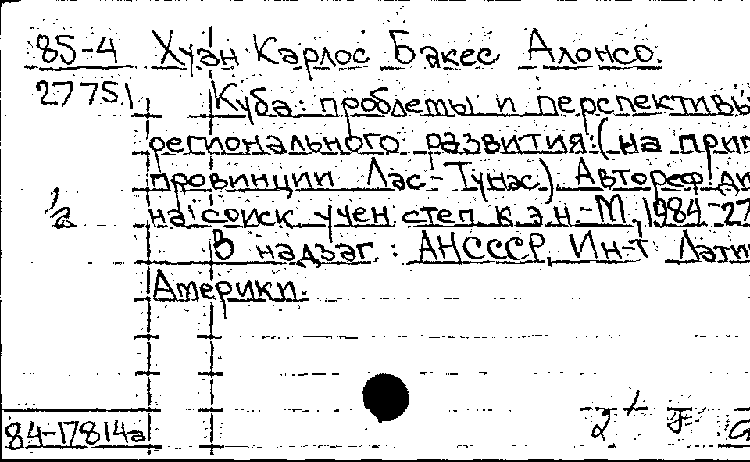 85-4 Хуан Карлос Бакес Алонсо.
27751 Куба: проблемы и перспективы
регионального развития: (на прим
провинции Лас-Тунас). Автореф. ди
на соиск. учен. степ. к.э.н.-М., 1984.-27
В надзаг.: АН СССР, Ин-т Лати
Америки.
84-17814а